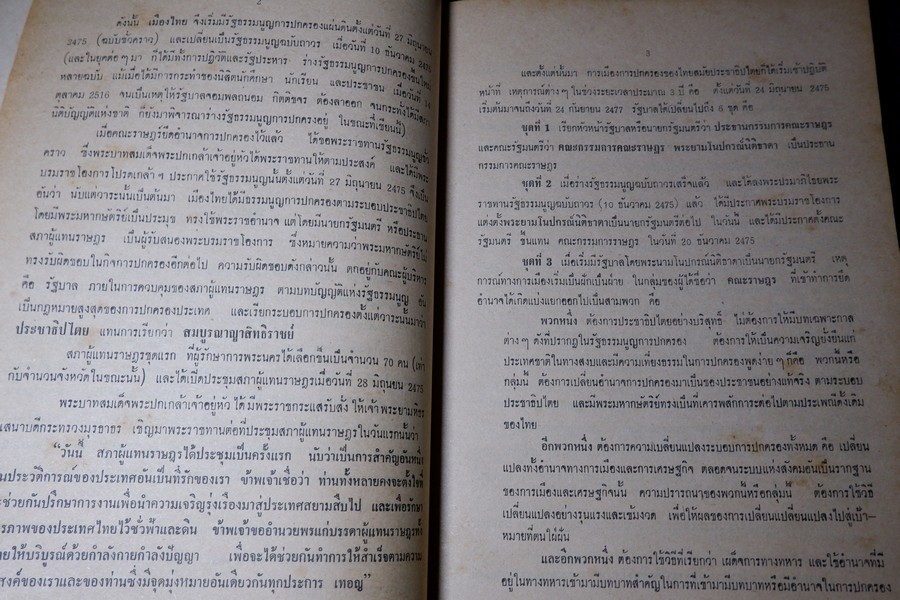 2
ดังนั้น เมืองไทย จึงเริ่มมีรัฐธรรมนูญการปกครองแผ่นดินตั้งแต่วันที่ 27 มิถุนายน
2475 (ฉบับชั่วคราว) และเปลี่ยนเป็นรัฐธรรมนูญฉบับถาวร เมื่อวันที่ 10 ธันวาคม 2475
(และในยุคต่อๆ มา ก็ได้มีทั้งการปฏิวัติและรัฐประหาร ร่างรัฐธรรมนูญการปกครองขึ้นใหม่
หลายฉบับ แม้เมื่อได้มีการกระทำของนิสิตนักศึกษา นักเรียน และประชาชน เมื่อวันที่ 14
ตุลาคม 2516 จนเป็นเหตุให้รัฐบาลจอมพลถนอม กิตติขจร ต้องลาออก จนกระทั่งได้มีสภา
นิติบัญญัติแห่งชาติ ก็ยังมาพิจารณาร่างรัฐธรรมนูญการปกครองอยู่ ในขณะที่เขียนนี้)
เมื่อคณะราษฎร์ยึดอำนาจการปกครองไว้แล้ว ได้ขอพระราชทานรัฐธรรมนูญชั่ว
คราว ซึ่งพระบาทสมเด็จพระปกเกล้าเจ้าอยู่หัวได้พระราชทานให้ตามประสงค์ และได้มีพระ
บรมราชโองการโปรดเกล้า ฯ ประกาศใช้รัฐธรรมนูญนั้นตั้งแต่วันที่ 27 มิถุนายน 2475 จึงเป็น
อันว่า นับแต่วาระนั้นเป็นต้นมา เมืองไทยได้มีธรรมนูญการปกครองตามระบอบประชาธิปไตย
โดยมีพระมหากษัตริย์เป็นประมุข ทรงใช้พระราชอำนาจ แต่โดยมีนายกรัฐมนตรี หรือประธาน
สภาผู้แทนราษฎร เป็นผู้รับสนองพระบรมราชโองการ ซึ่งหมายความว่าพระมหากษัตริย์ไม่
ทรงรับผิดชอบในกิจการปกครองอีกต่อไป ความรับผิดชอบดังกล่าวนั้น ตกอยู่กับคณะผู้บริหาร
คือ รัฐบาล ภายในการควบคุมของสภาผู้แทนราษฎร ตามบทบัญญัติแห่งรัฐธรรมนูญ อัน
เป็นกฎหมายสูงสุดของการปกครองประเทศ และเรียกระบอบการปกครองตั้งแต่วาระนั้นมาว่า
ประชาธิปไตย แทนการเรียกว่า สมบูรณาญาสิทธิราชย์
สภาผู้แทนราษฎรชุดแรก ที่ผู้รักษาการพระนครได้เลือกขึ้นเป็นจำนวน 70 คน (เท่า
กับจำนวนจังหวัดในขณะนั้น) และได้เปิดประชุมสภาผู้แทนราษฎรเมื่อวันที่ 28 มิถุนายน 2475
พระบาทสมเด็จพระปกเกล้าเจ้าอยู่หัว ได้ มีพระราชกระแสรับสั่ง ให้เจ้าพระยามหิธร
เสนาบดีกระทรวงมุรธาธร เชิญมาพระราชทานต่อที่ประชุมสภาผู้แทนราษฎรในวันแรกนั้นว่า
"วันนี้ สภาผู้แทนราษฎรได้ประชุมเป็นครั้งแรก นับว่าเป็นการสำคัญอันหนึ่ง
มประวัติการณ์ของประเทศอันเป็นที่รักของเรา ข้าพเจ้าเชื่อว่า ท่านทั้งหลายคงจะตั้งใจที่
ะช่วยกันปรึกษาการงานเพื่อนำความเจริญรุ่งเรืองมาสู่ประเทศสยามสืบไป และเพื่อรักษา
รภาพของประเทศไทยไว้ชั่วฟ้าและดิน ข้าพเจ้าขออำนวยพรแก่บรรดาผู้แทนราษฎรทั้ง
ายให้บริบูรณ์ด้วยกำลังกายกำลังปัญญา เพื่อจะได้ช่วยกันทำการให้สำเร็จตามความ
สงค์ของเราและของท่านซึ่งมีจุดมุ่งหมายอันเดียวกันทุกประการ เทอญ"
3
และตั้งแต่นั้นมา การเมืองการปกครองของไทยสมัยประชาธิปไตยก็ได้เริ่มเข้าปฏิบัติ
หน้าที่ เหตุการณ์ต่างๆ ในช่วงระยะเวลาประมาณ 3 ปี คือ ตั้งแต่วันที่ 24 มิถุนายน 2475
เริ่มต้นมาจนถึงวันที่ 24 กันยายน 2477 รัฐบาลได้เปลี่ยนไปถึง 6 ชุด คือ
ชุดที่ 1 เรียกหัวหน้ารัฐบาลหรือนายกรัฐมนตรีว่า ประธานกรรมการคณะราษฎร
และคณะรัฐมนตรีว่า คณะกรรมการคณะราษฎร พระยามโนปกรณ์นิติธาดา เป็นประธาน
กรรมการคณะราษฎร
ชุดที่ 2 เมื่อร่างรัฐธรรมนูญฉบับถาวรเสร็จแล้ว และได้ลงพระปรมาภิไธยพระ
ราชทานรัฐธรรมนูญฉบับถาวร (10 ธันวาคม 2475) แล้ว ได้มีประกาศพระบรมราชโองการ
แต่งตั้งพระยามโนปกรณ์นิติธาดาเป็นนายกรัฐมนตรีต่อไป ในวันนี้ และได้มีประกาศตั้งคณะ
รัฐมนตรี ขึ้นแทน คณะกรรมการราษฎร ในวันที่ 20 ธันวาคม 2475
ชุดที่ 3 เมื่อเริ่มมีรัฐบาลโดยพระนามโนปกรณ์นิติธาดาเป็นนายกรัฐมนตรี เหตุ
การณ์ทางการเมืองเริ่มเป็นผักเป็นฝ่าย ในกลุ่มของผู้ได้ชื่อว่า คณะราษฎร ที่เข้าทำการยึด
อำนาจได้เกิดแบ่งแยกออกไปเป็นสามพวก คือ
พวกหนึ่ง ต้องการประชาธิปไตยอย่างบริสุทธิ์ ไม่ต้องการให้มีบทเฉพาะกาล
ต่างๆ ดังที่ปรากฏในรัฐธรรมนูญการปกครอง ต้องการให้เป็นความเจริญยั่งยืนแก่
ประเทศชาติในทางสงบและมีความเที่ยงธรรมในการปกครองพูดง่าย ๆ ก็คือ พวกนี้หรือ
กลุ่มนี้ ต้องการเปลี่ยนอำนาจการปกครองมาเป็นของประชาชนอย่างแท้จริง ตามระบอบ
ประชาธิปไตย และมีพระมหากษัตริย์ทรงเป็นที่เคารพสักการะต่อไปตามประเพณีดั้งเดิม
ของไทย
อีกพวกหนึ่ง ต้องการความเปลี่ยนแปลงระบอบการปกครองทั้งหมด คือ เปลี่ยน
แปลงทั้งอำนาจทางการเมืองและการเศรษฐกิจ ตลอดจนระบบแห่งสังคมอันเป็นรากฐาน
ของการเมืองและเศรษฐกิจนั้น ความปรารถนาของพวกนี้หรือกลุ่มนี้ ต้องการใช้วิธี
เปลี่ยนแปลงอย่างรุนแรงและเข้มงวด เพื่อให้ผลของการเปลี่ยนเปลี่ยนแปลงไปสู่เป้า-
หมายที่ตนใฝ่ฝัน
และอีกพวกหนึ่ง ต้องการใช้วิธีที่เรียกว่า เผด็จการทางทหาร และใช้อำนาจที่มี
อยู่ในทางทหารเข้ามามีบทบาทสำคัญในการที่เข้ามามีบทบาทหรือมีอำนาจในการปกครอง